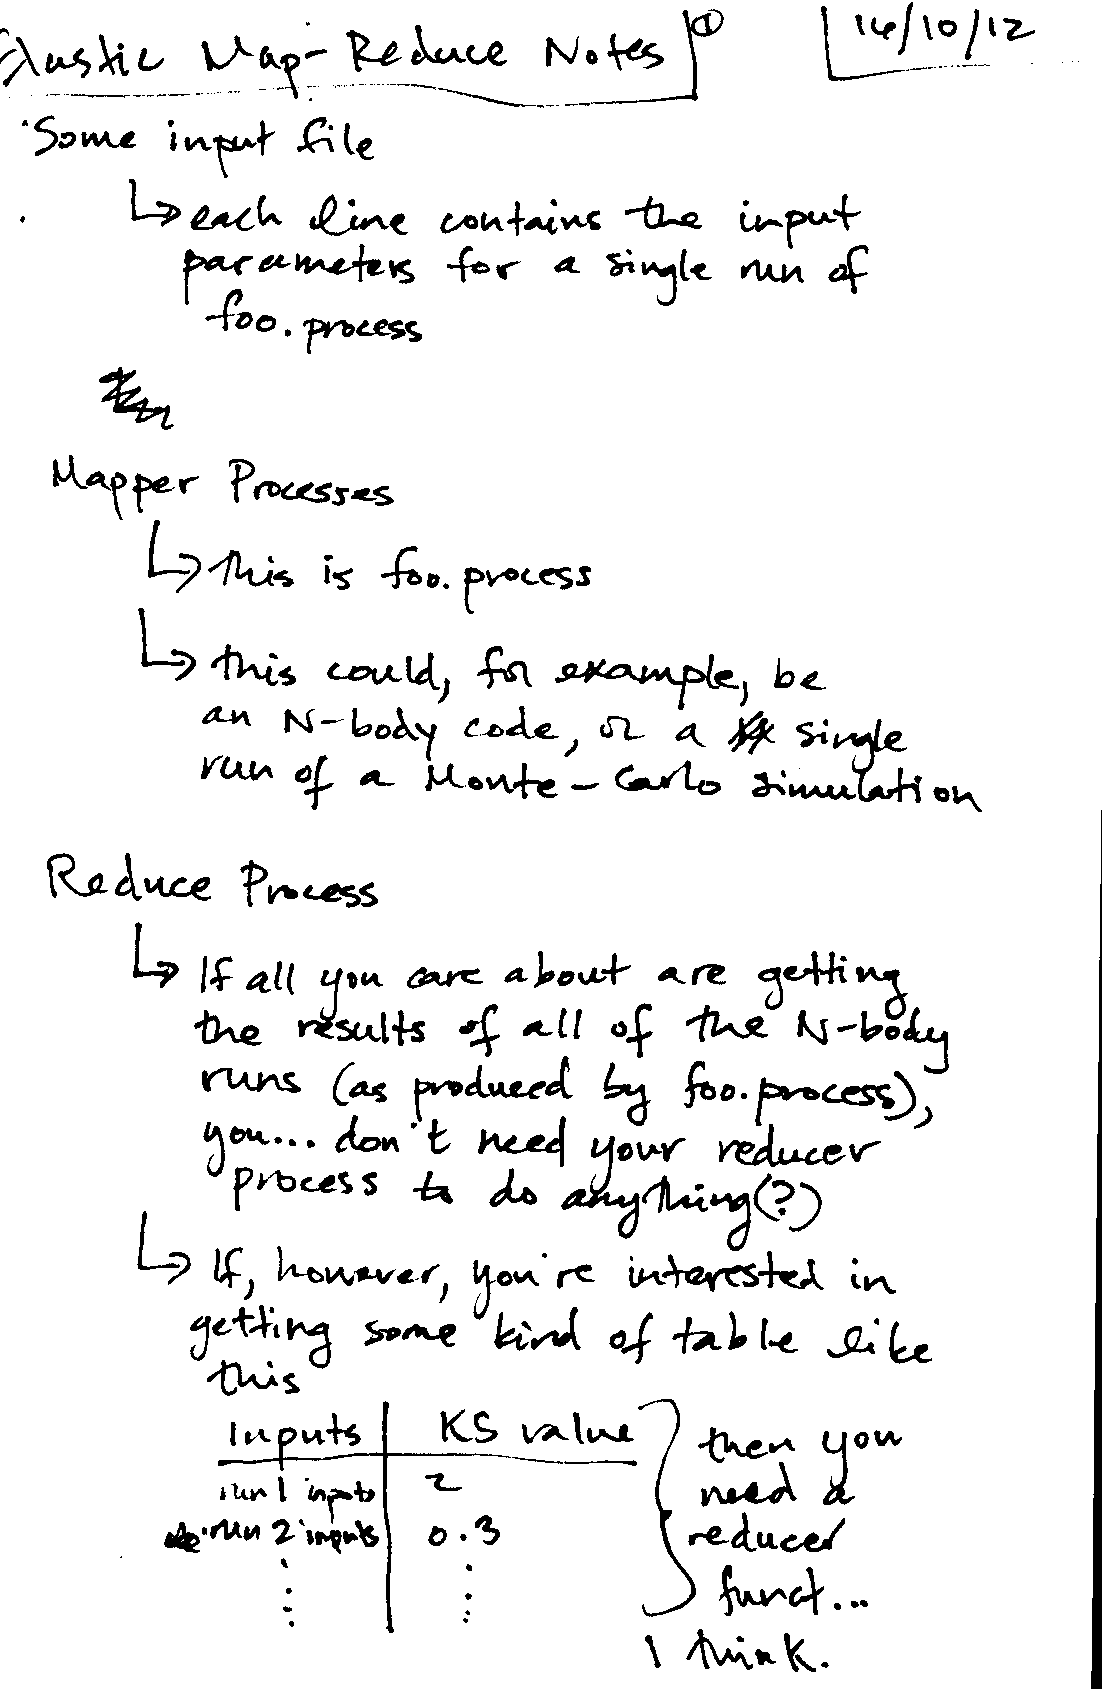 Elastic Map-Reduce Notes ① 16/10/12
Some input file
↳ each line contains the input
parameters for a single run of
foo.process
Mapper Processes
↳ this is foo.process
↳ this could, for example, be
an N-body code, or a single
run of a Monte-Carlo simulation
Reduce Process
↳ If all you care about are getting
the results of all of the N-body
runs (as produced by foo.process),
you... don't need your reducer
process to do anything(?)
↳ If, however, you're interested in
getting some kind of table like
this
Inputs KS value
run 1 inputs 2
run 2 inputs 0.3
⋮ ⋮
then you
need a
reducer
funct...
I think.